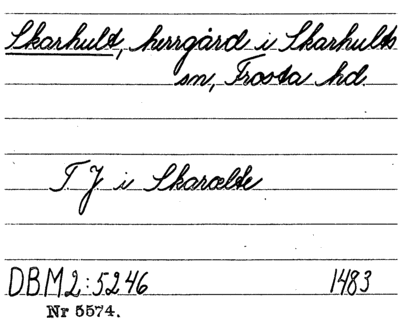 Skarhult, herrgård i Skarhults
sn, Frosta hd.
T. J. i Skaraelte
DBM2:5246 1483
Nr 5574.